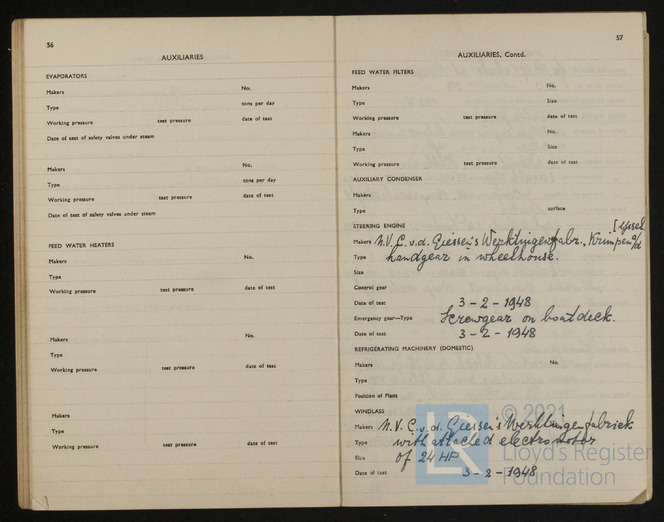 56
AUXILIARIES
EVAPORATORS
Makers No.
Type tons per day
Working pressure test pressure date of test
Date of test of safety valves under steam
Makers No.
Type tons per day
Working pressure test pressure date of test
Date of test of safety valves under steam
FEED WATER HEATERS
Makers No.
Type
Working pressure test pressure date of test
Makers No.
Type
Working pressure test pressure date of test
Makers
Type
Working pressure test pressure date of test
57
AUXILIARIES, Contd.
FEED WATER FILTERS
Makers No.
Type Size
Working pressure test pressure date of test
Makers No.
Type Size
Working pressure test pressure date of test
AUXILIARY CONDENSER
Makers
Type surface
STEERING ENGINE
[Yssel
Makers N.V. C. v.d. Giessen's Werktuigenfabr., Krimpen a/d
Type handgear in wheelhouse.
Size
Control gear
Date of test 3-2-1948
Emergency gear—Type Screwgear on boatdeck.
Date of test 3-2-1948
REFRIGERATING MACHINERY (DOMESTIC)
Makers No.
Type
Position of Plant
WINDLASS
Makers N.V. C. v.d. Giessen's Werktuigenfabriek
Type with attached electromotor
Size of 24 HP
Date of test 3-2-1948
LR © 2021
Lloyd's Register
Foundation